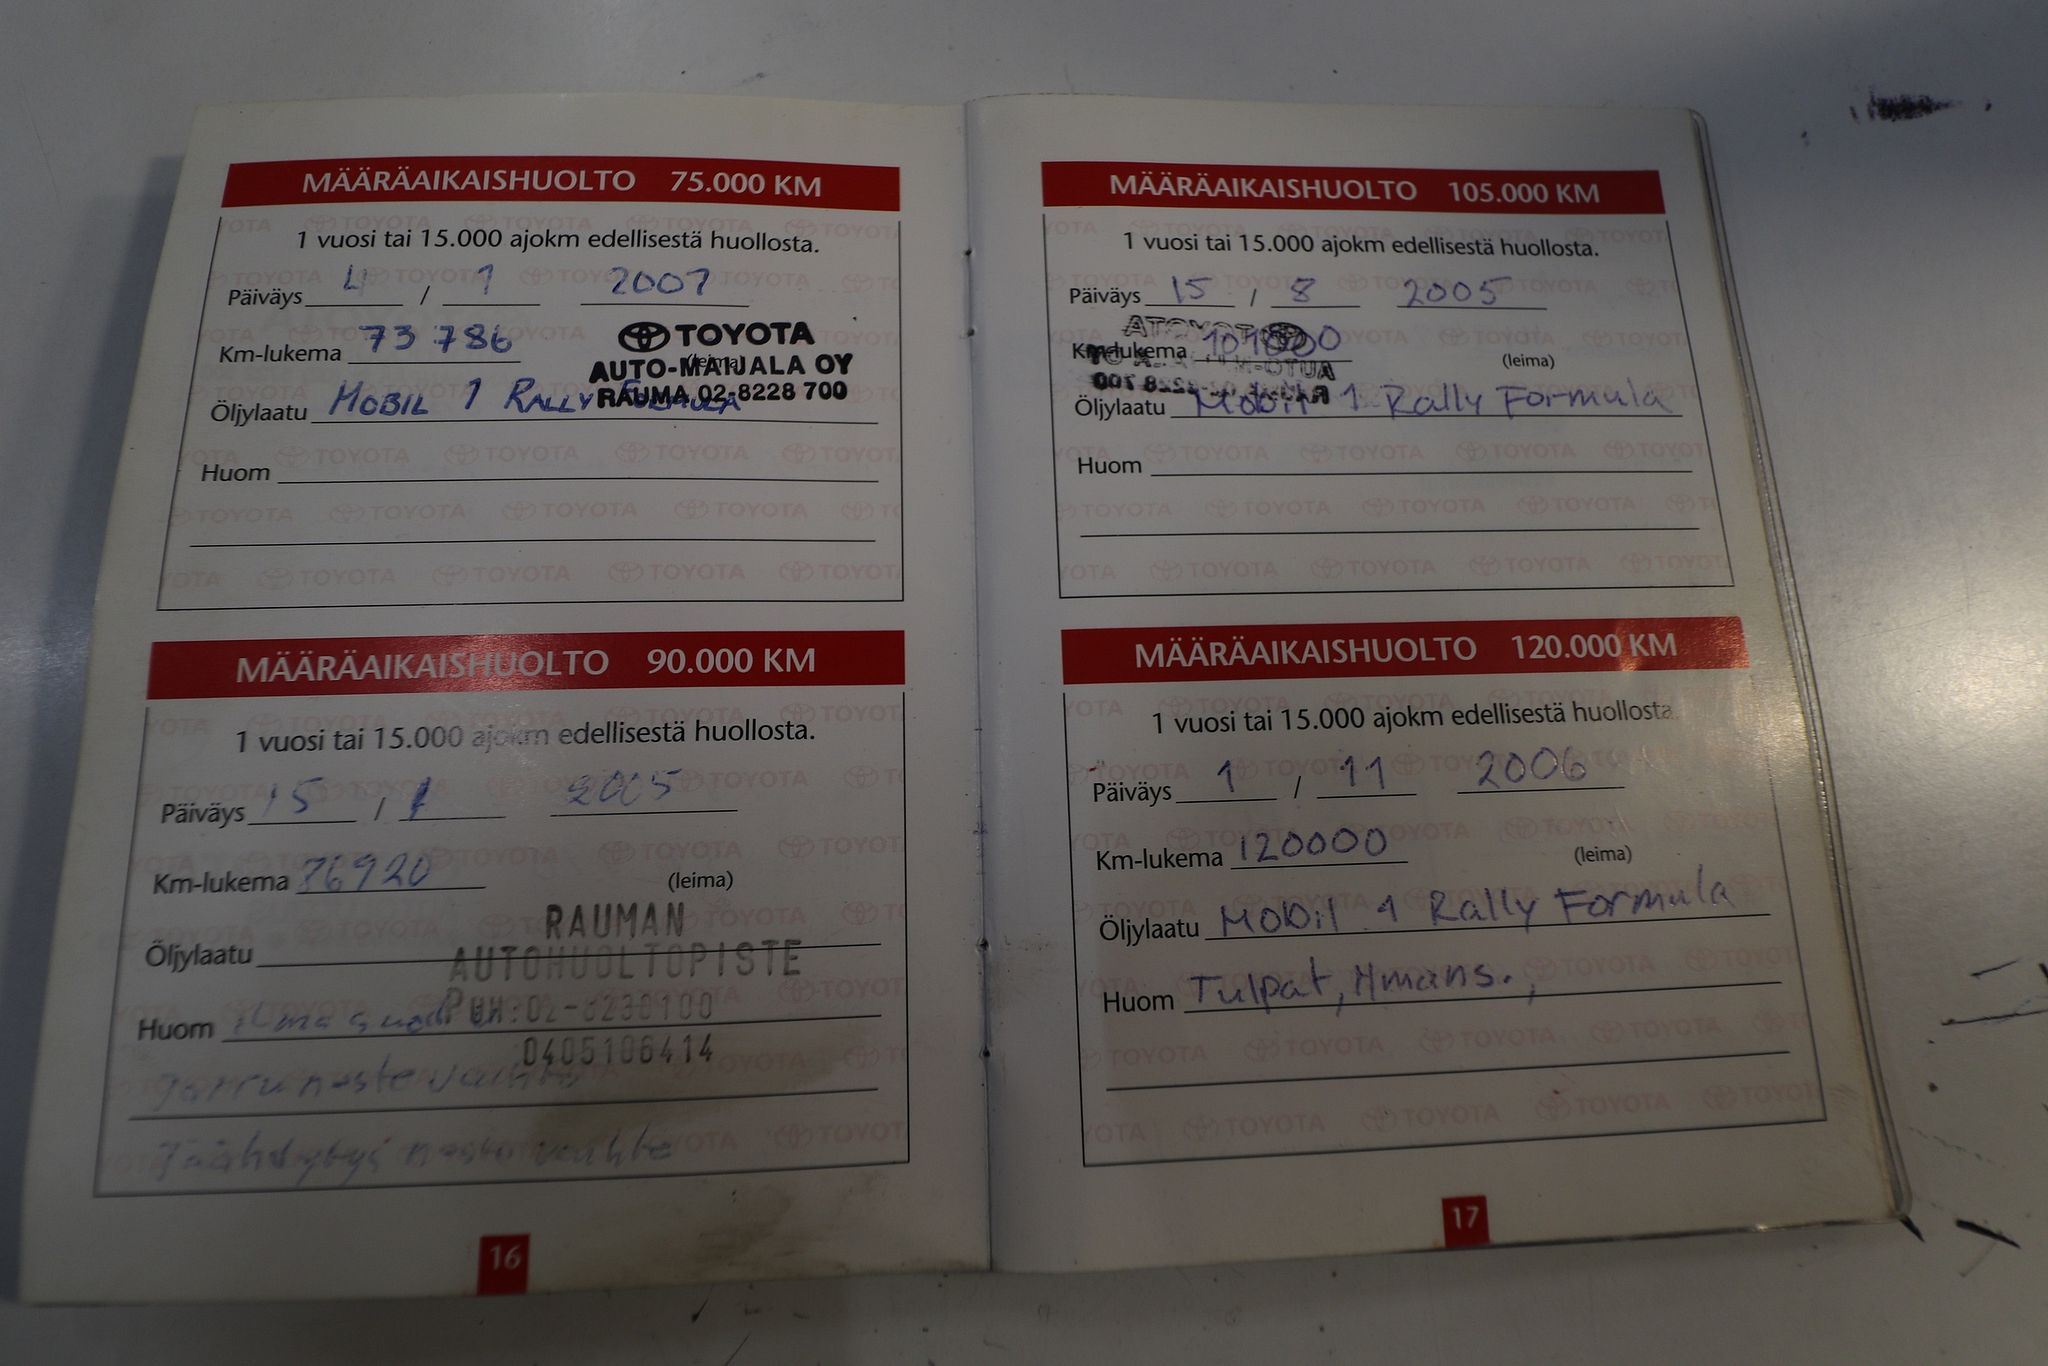 MÄÄRÄAIKAISHUOLTO 75.000 KM
1 vuosi tai 15.000 ajokm edellisestä huollosta.
Päiväys 4 / 1 2007
Km-lukema 73 786
TOYOTA
(leima)
AUTO-MAIJALA OY
RAUMA 02-8228 700
Öljylaatu MOBIL 1 RALLY FORMULA
Huom
MÄÄRÄAIKAISHUOLTO 90.000 KM
1 vuosi tai 15.000 ajokm edellisestä huollosta.
Päiväys 15 / 1 2005
Km-lukema 86920 (leima)
RAUMAN
AUTOHUOLTOPISTE
Öljylaatu
PUH:02-8230100
0405106414
Huom Ilmasuodatin
Jarruneste vaihto
Jäähdytys neste vaihto
16
MÄÄRÄAIKAISHUOLTO 105.000 KM
1 vuosi tai 15.000 ajokm edellisestä huollosta.
Päiväys 15 / 8 2005
Km-lukema (leima)
Öljylaatu Mobil 1 Rally Formula
Huom
MÄÄRÄAIKAISHUOLTO 120.000 KM
1 vuosi tai 15.000 ajokm edellisestä huollosta.
Päiväys 1 / 11 2006
Km-lukema 120000 (leima)
Öljylaatu Mobil 1 Rally Formula
Huom Tulpat, Hmans.,
17